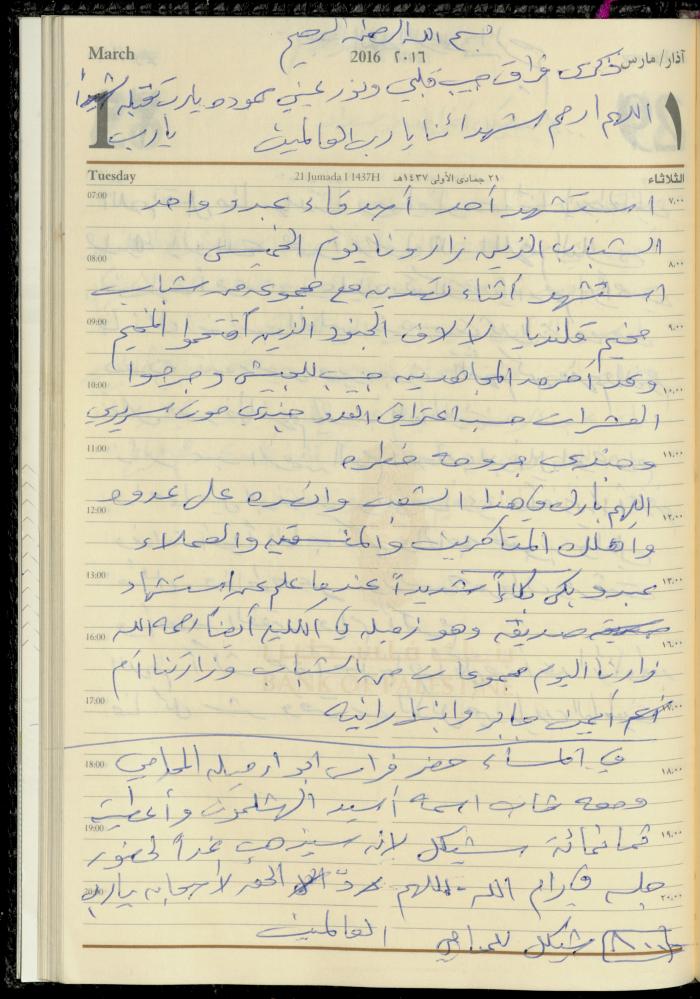 بسم الله الرحمن الرحيم
March 2016 ٢٠١٦ آذار/مارس
ذكرى فراق حبيب قلبي ونور عيني حموده يارب تقبله شهيداً
1 اللهم ارحم شهدائنا يا رب العالمين يارب ١
Tuesday 21 Jumada I 1437H ٢١ جمادى الأولى ١٤٣٧هـ الثلاثاء
07:00 استشهد أحد أصدقاء عبدو واحد ٧:٠٠
الشباب الذين زارونا يوم الخميس
08:00 ٨:٠٠
استشهد أثناء تصديه مع مجموعه من شباب
09:00 مخيم قلنديا لآلاف الجنود الذين اقتحموا المخيم ٩:٠٠
وقد أحرقد المجاهدين جيب للجيش وجرحوا
10:00 ١٠:٠٠
العشرات حسب اعتراف العدو جندي موت سريري
11:00 وجندي جروحه خطره ١١:٠٠
اللهم بارك في هذا الشعب وانصره على عدوه
12:00 ١٢:٠٠
وأهلك المتآمرين والمنسقين والعملاء
13:00 عبدو بكى بكاءً شديداً عندما علم عن استشهاد ١٣:٠٠
صديقه وهو زميله في الكليه أيضاً رحمه الله
16:00 ١٦:٠٠
زارنا اليوم مجموعات من الشباب وزارتنا أم
17:00 أيمن جابر وابنتها رانيه ١٧:٠٠
18:00 في المساء حضر فراس ابو ارميله المحامي ١٨:٠٠
ومعه شاب اسمه أسيد الهشلمون وأعطيته
19:00 ثمانمائة شيكل لانه سيذهب غداً لحضور ١٩:٠٠
20:00 جلسه في رام الله - اللهم ردّ الحق لأصحابه يارب ٢٠:٠٠
العالمين
٨٠٠ شيكل للمحامي
BANK OF PALESTINE